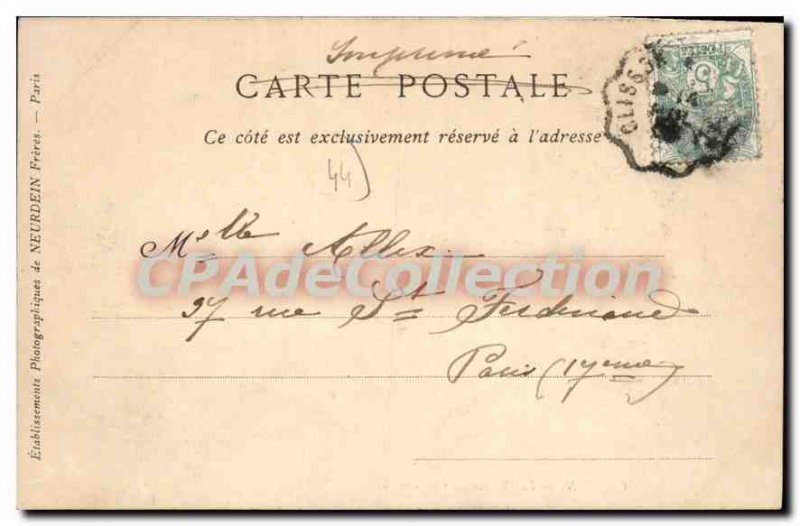 Imprimé
CARTE POSTALE
Ce côté est exclusivement réservé à l'adresse
44
Melle Allix
CPAdeCollection.com
27 rue St Ferdinand
Paris (17eme)
Établissements Photographiques de NEURDEIN Frères. — Paris
CLISSON
5